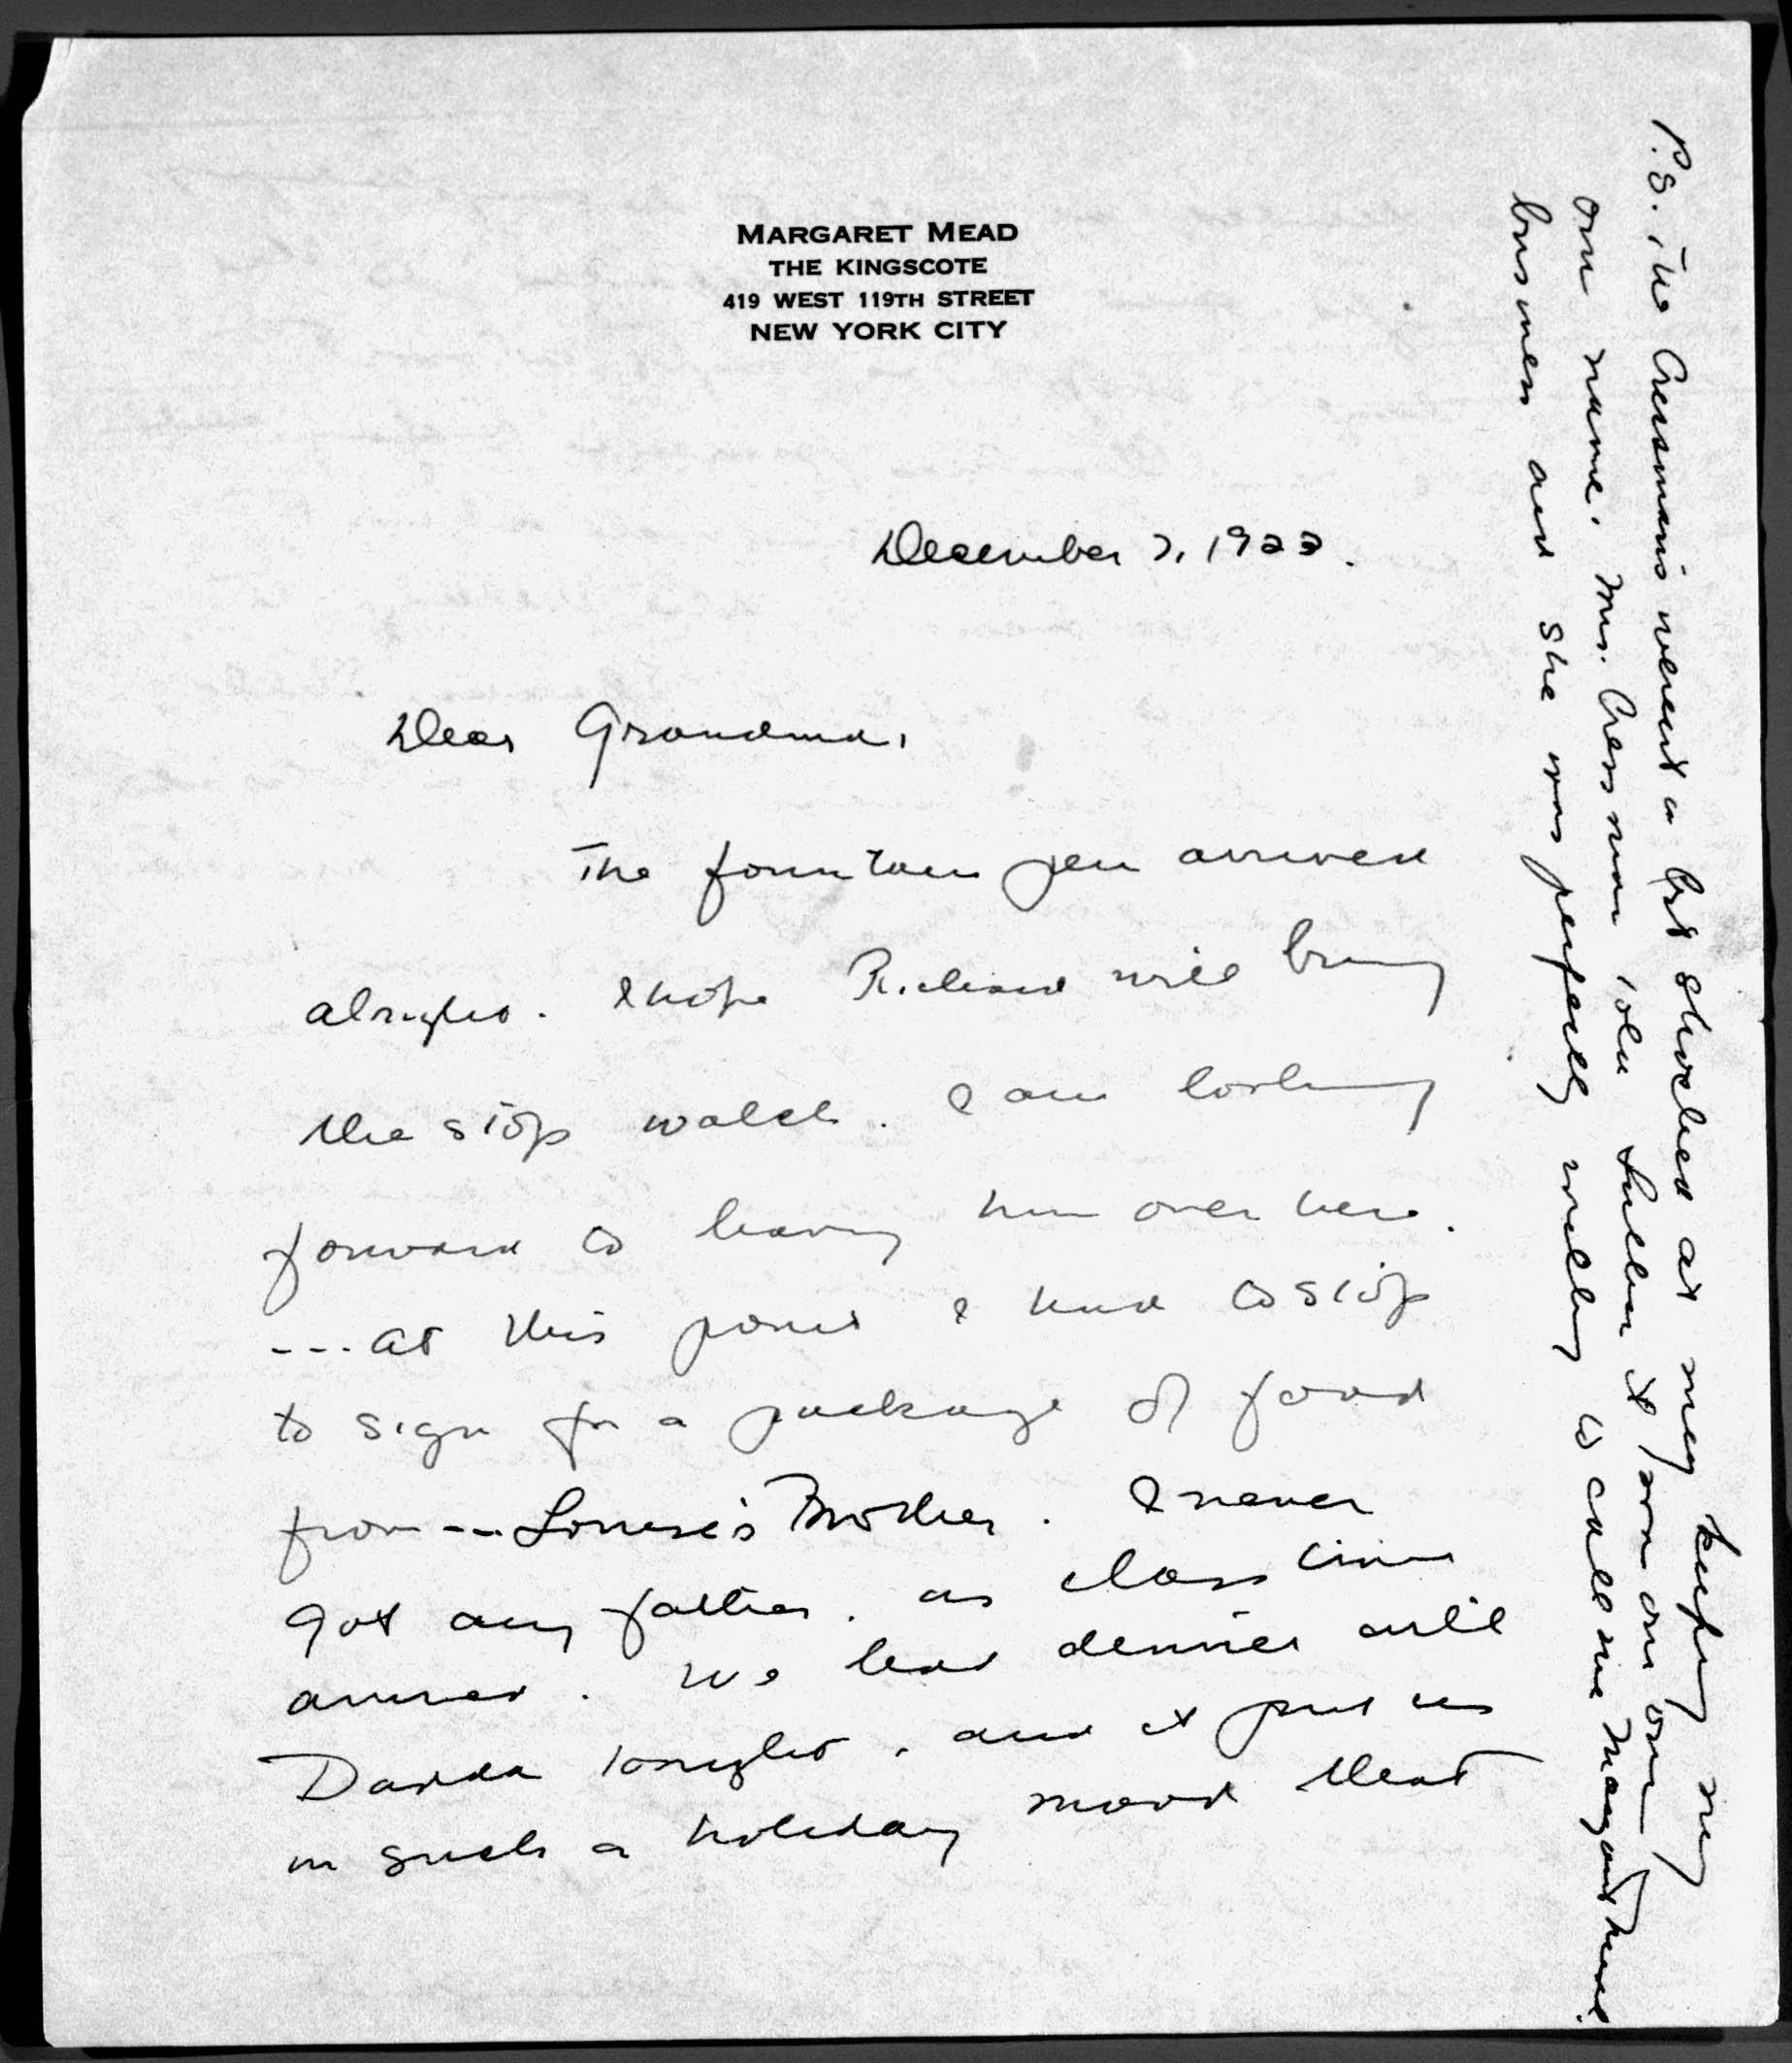 MARGARET MEAD
THE KINGSCOTE
419 WEST 119TH STREET
NEW YORK CITY
December 7, 1923.
Dear Grandma,
The fountain pen arrived
alright. I hope Richard will bring
the stop watch. I am looking
forward to having him over here.
--- at this point I had to stop
to sign for a package of food
from --- Louise's Mother. I never
got any farther, as class time
arrived. We had dinner with
Dadda tonight, and it put us
in such a holiday mood that
P.S. The Cressmans weren't a bit shocked at my keeping my
own name. Mrs. Cressman told Luther it was our own
business and she was perfectly willing to call me Margaret Mead.